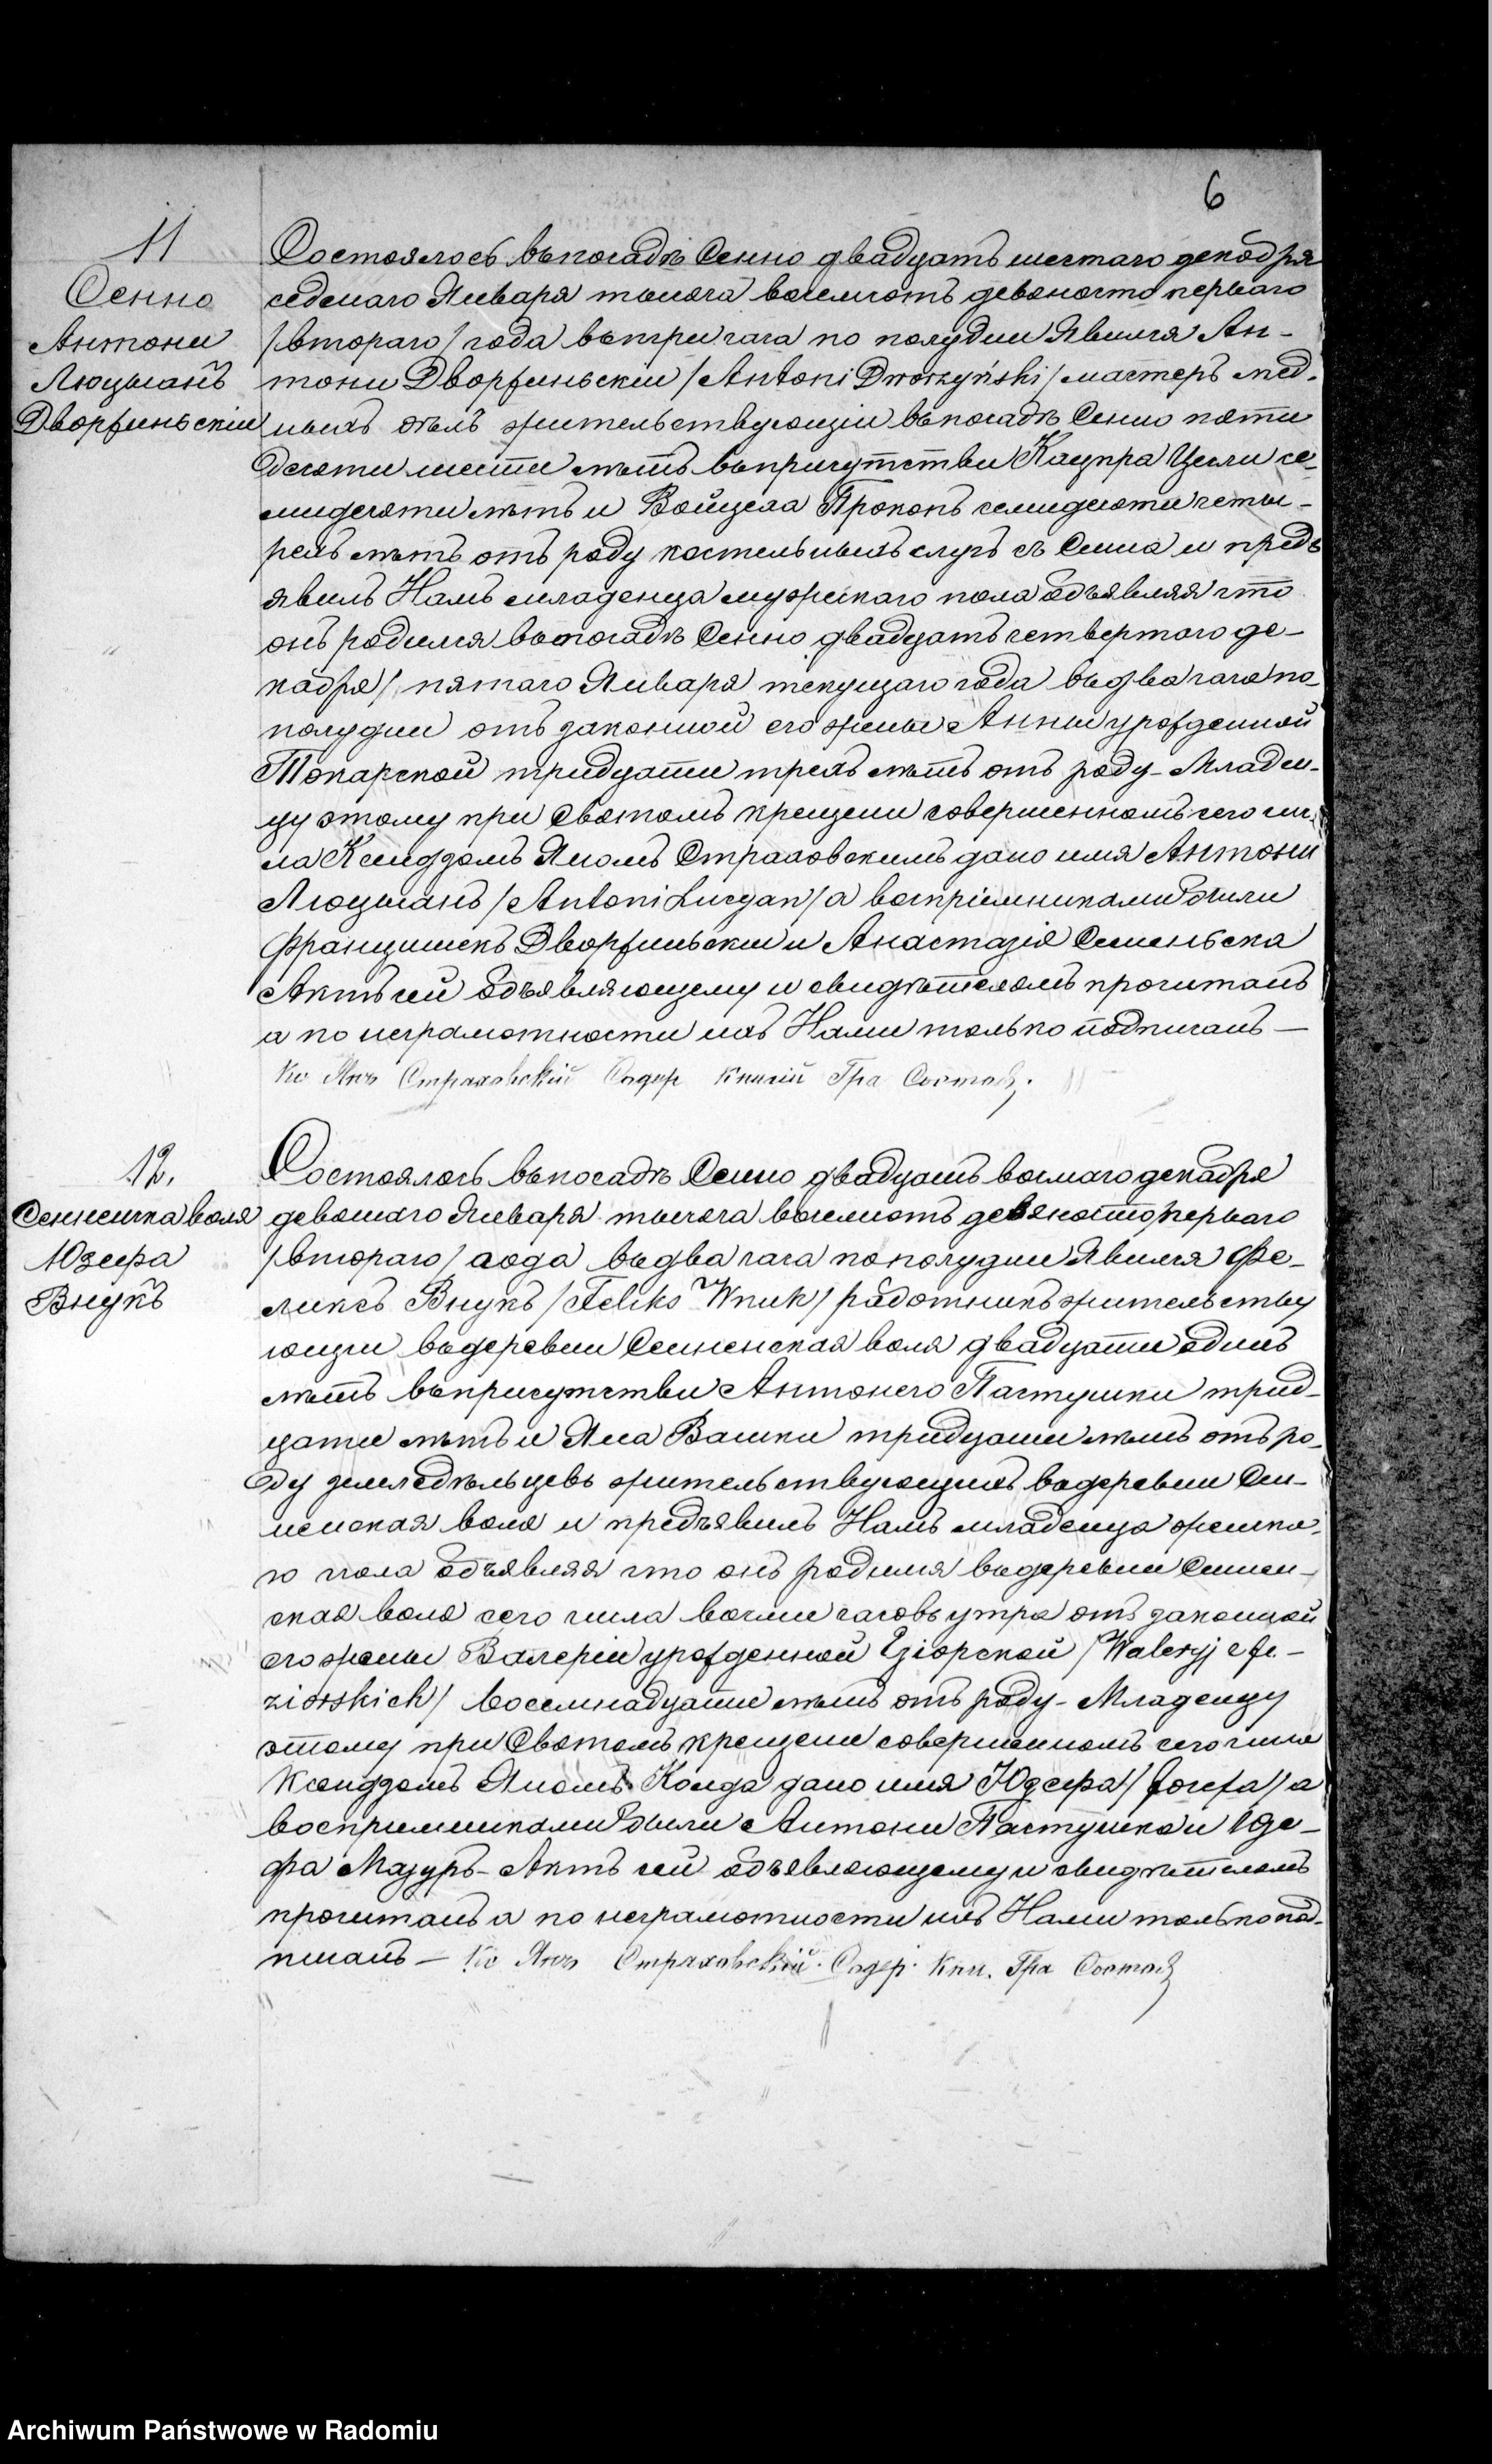 6
11
Сенно
Антони
Люцыанъ
Дворжиньскiи
Состоялось въ посадѣ Сенно двадцать шестаго декабря
седьмаго Января тысяча восемсотъ девяносто перваго
/втораго/ года въ три часа по полудни Явился Ан-
тони Дворжиньскіи /Antoni Dworzyński/ мастеръ мѣд-
жительствующіи въ посадѣ Сенно пяти
десяти шести лѣтъ въ присутствіи Кацпра Цесли се-
мидесяти лѣтъ и Войцеха Прокопъ семидесяти четы-
рехъ лѣтъ отъ роду костельныхъ слугъ съ Сенна и предъ
явилъ Намъ младенца мужскаго пола объявляя что
онъ родился въ посадѣ Сенно двадцать четвертаго де-
кабря / пятаго Января текущаго года въ два часа по-
полудни отъ законной его жены Анны урожденной
Токарской тридцати трехъ лѣтъ отъ роду - Младен-
цу этому при Святомъ крещеніи совершенномъ сего чис-
ла Ксендзомъ Яномъ Страховскимъ дано имя Антони
Люцыанъ /Antoni Lucyan/ а воспріемниками были
Францишекъ Дворжиньскіи и Анастазія Семеньска
Актъ сей объявляющему и свидѣтелямъ прочитанъ
а по неграмотности ихъ Нами только подписанъ —
Кс Янъ Страховскій Содер Книгій Гра Состоя.
12.
Сенненска воля
Юзефа
Внукъ
Состоялось въ посадѣ Сенно двадцать восьмаго декабря
девятаго Января тысяча восемсотъ девяносто перваго
/втораго/ года въ два часа по полудни Явился Фе-
ликсъ Внукъ /Feliks Wnuk/ работникъ жительству
ющіи въ деревни Сенненская воля двадцати одинъ
лѣтъ въ присутствіи Антонего Пастушки трид-
цати лѣтъ и Яна Вашки тридцати лѣтъ отъ ро-
ду земледѣльцевъ жительствующихъ въ деревни Сен-
ненская воля и предъявилъ Намъ младенца женска-
го пола объявляя что онъ родился въ деревни Сеннен-
ская воля сего числа въ часовъ утра отъ законной
его жены Валеріи урожденной Езіорской /Waleryj z Je-
ziorskich/ восемнадцати лѣтъ отъ роду - Младенцу
этому при Святомъ крещеніи совершенномъ сего числа
Ксендзомъ Яномъ Конда дано имя Юзефа /Józefa/ а
воспріемниками были Антони Пастушка и Юзе-
фа Мазуръ - Актъ сей объявляющему и свидѣтелямъ
прочитанъ а по неграмотности ихъ Нами только под-
писанъ — Кс Янъ Страховскій. Содер. Кни. Гра Состоя
Archiwum Państwowe w Radomiu